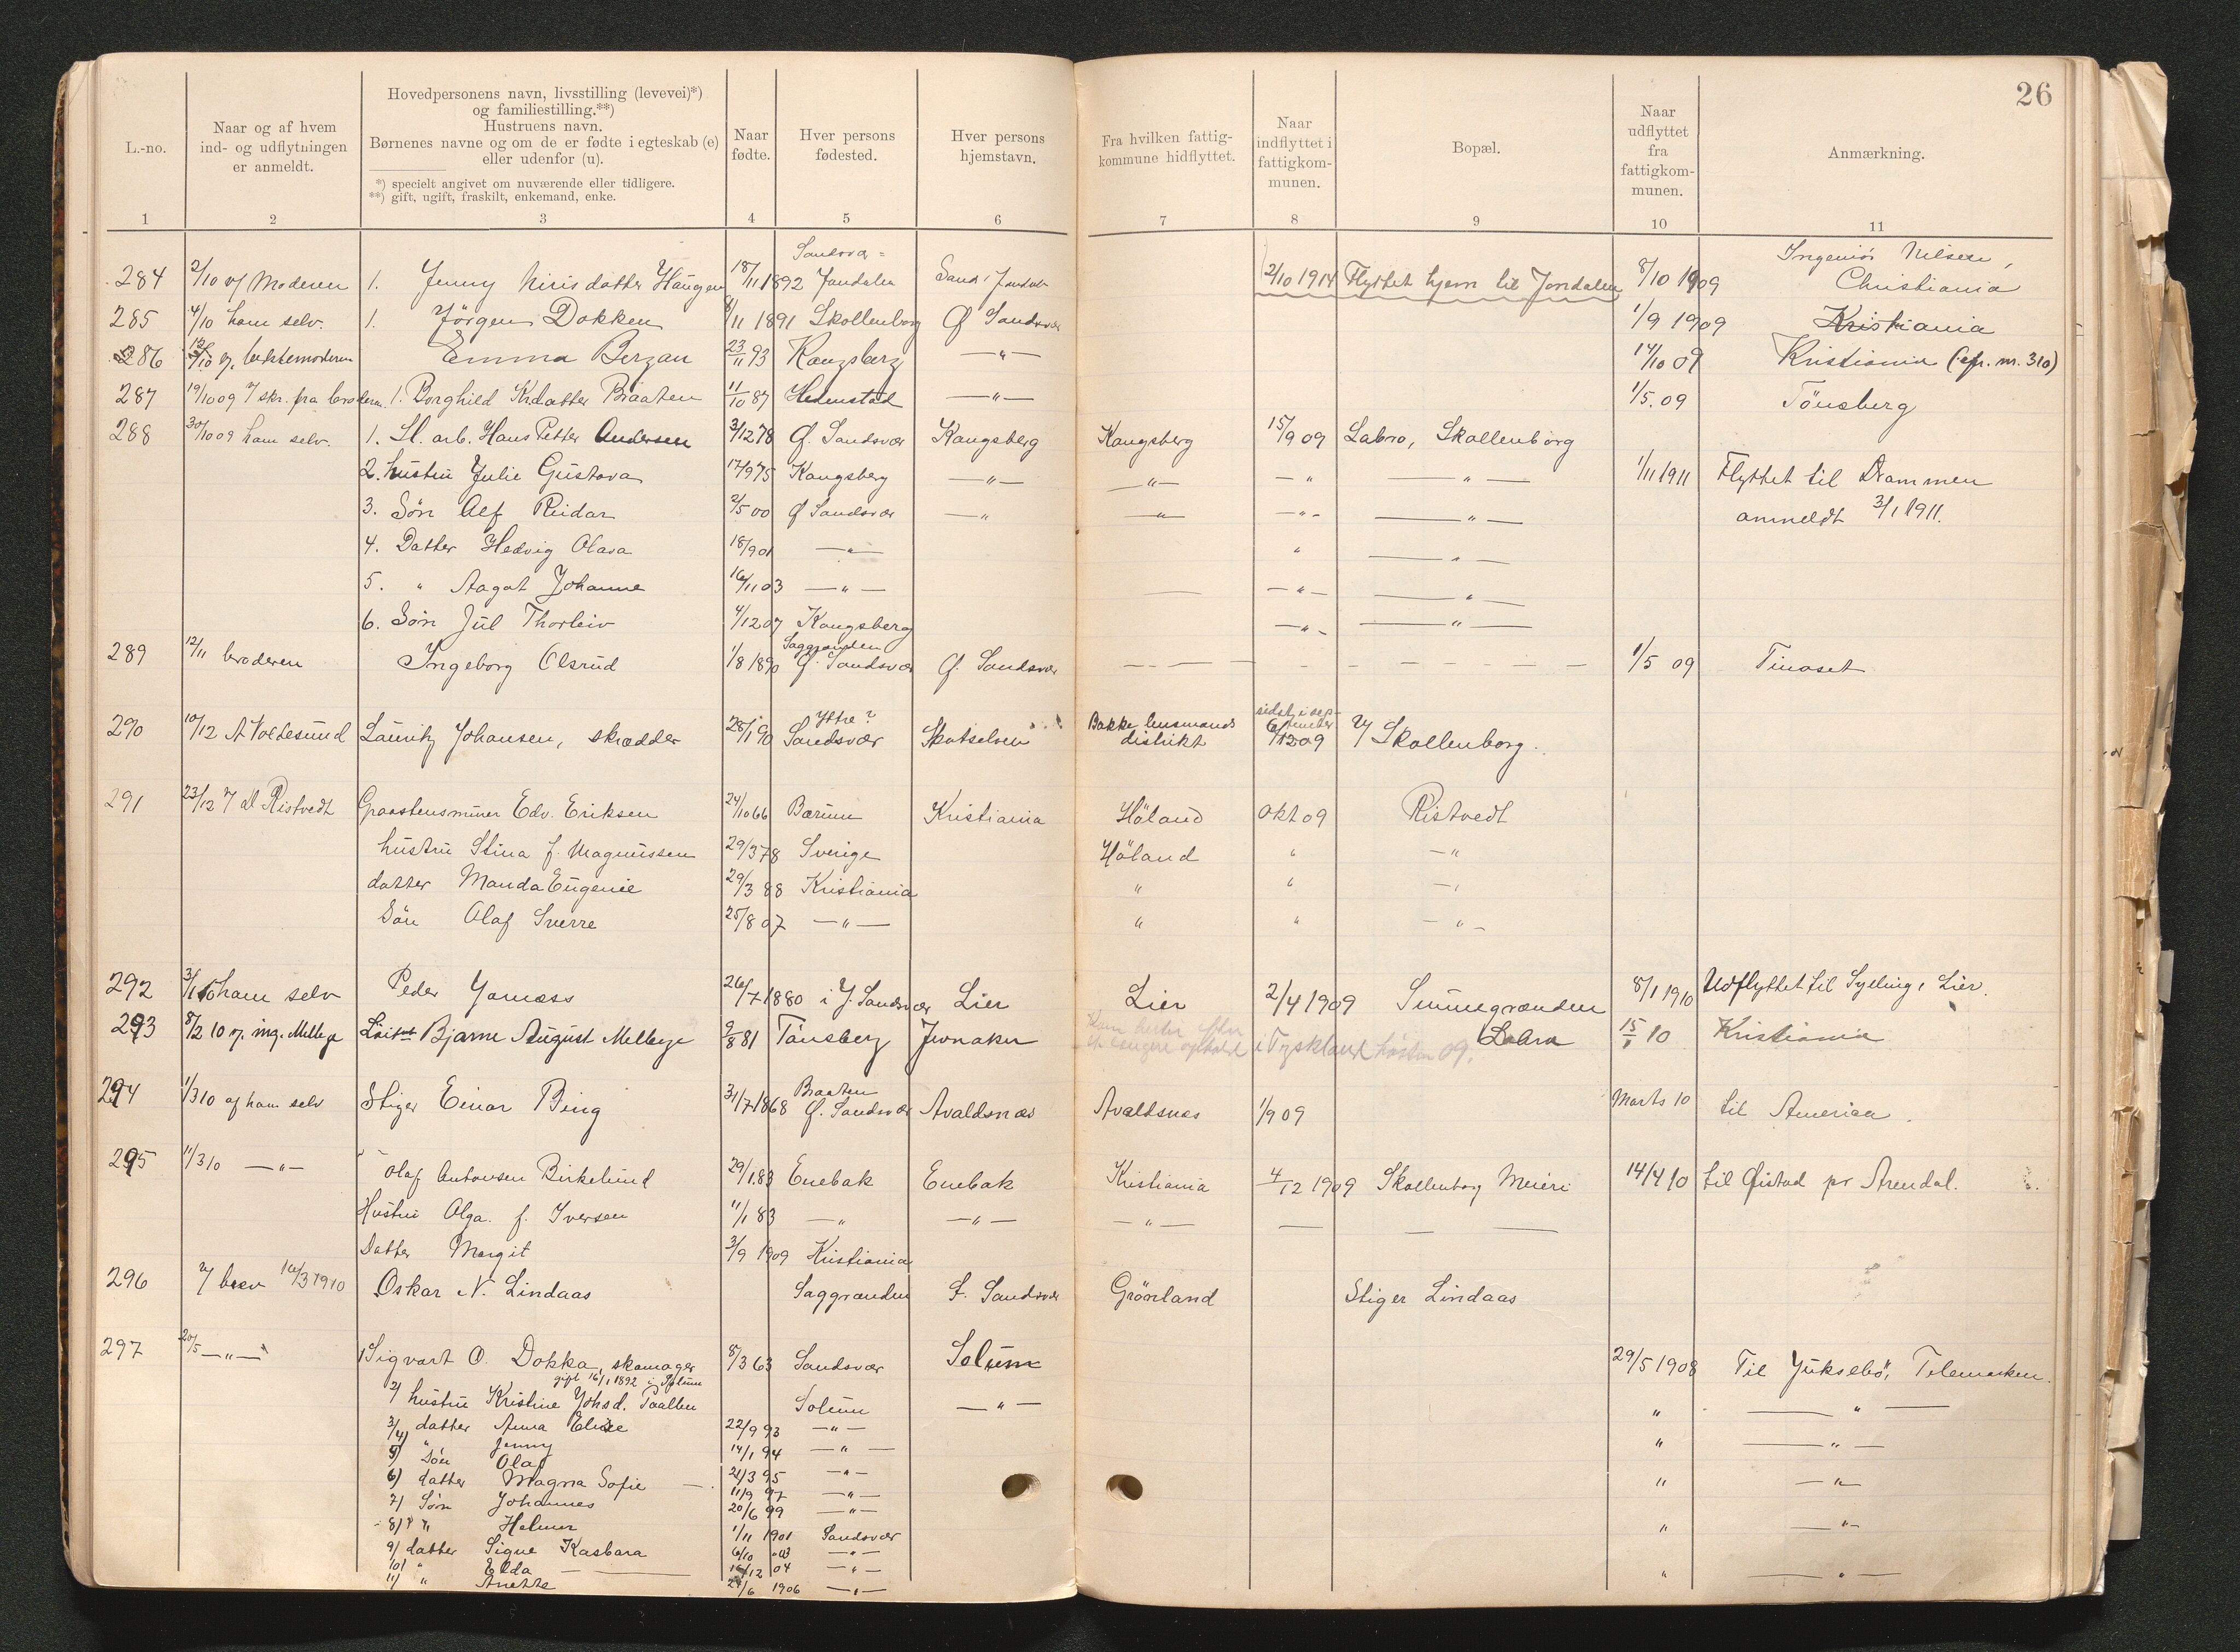 26
L.-no.
Naar og af hvem
ind- og udflytningen
er anmeldt.
Hovedpersonens navn, livsstilling (levevei)*)
og familiestilling.**)
Hustruens navn.
Børnenes navne og om de er fødte i egteskab (e)
eller udenfor (u).
*) specielt angivet om nuværende eller tidligere.
**) gift, ugift, fraskilt, enkemand, enke.
Naar
fødte.
Hver persons
fødested.
Hver persons
hjemstavn.
Fra hvilken fattig-
kommune hidflyttet.
Naar
indflyttet i
fattigkom-
munen.
Bopæl.
Naar
udflyttet
fra
fattigkom-
munen.
Anmærkning.
1 2 3 4 5 6 7 8 9 10 11
Ingeniør Nilsen,
284 2/10 v/ Moderen 1. Jenny Nirisdatter Haugen 18/11 1892 Jondalen 2/10 1914 Flyttet hjem til Jondalen 8/10 1909 Christiania
285 4/10 ham selv. 1. Jörgen Dokken /11 1891 Skollenborg Ø Sandsvær 1/9 1909 Kristiania
286 Emma Bergan 23/11 93 Kongsberg —"— 14/10 09 Kristiania (cfr. nr. 310)
287 19/10 09 v/ skr. fra broderen. 1. Borghild Krdatter Braaten 11/10 87 Hedenstad —"— 1/5. 09 Tönsberg
288 30/10 09 ham selv. 1. Sl. arb. Hans Petter Andersen 3/12 78 Ø. Sandsvær Kongsberg Kongsberg 15/9 09 Labro, Skollenborg
2. hustru Julie Gustava 17/9 75 Kongsberg —"— —"— — " —"— 1/11 1911 Flyttet til Drammen
3. Sön Alf Reidar 2/5 00 Ø Sandsvær —" —"— —"- —"— anmeldt 3/1 1911.
4. Datter Hedvig Olava 18/9 01 —"— " —"—
5. " Aagot Johanne 16/11 03 —"— —"— —"—
6. Sön Jul Thorleiv 4/12 07 Kongsberg —"- —"—
Saggrenden
289 12/11 broderen Ingeborg Olsrud 1/8 1890 Ø. Sandsvær Ø. Sandsvær 1/5 09 Tinoset
Ytre ? Bakke husmands sidst i september
290 10/12 A Voldesund Lauritz Johansen, skrædder 28/1 90 Sandsvær Skotselven distrikt 6/12 09 v/ Skollenborg.
291 23/12 v/ A Ristvedt Graastensmurer Edv. Eriksen 24/10 66 Bærum Kristiania Höland Okt 09 Ristvedt
hustru Stina f. Magnussen 29/3 78 Sverige Höland " —"
datter Manda Eugenie 29/3 88 Kristiania " " —"
Sön Olaf Sverre 25/8 07 —"— " " —"—
292 3/1 10 ham selv Peder Jamæss 26/7 1880 i Y. Sandsvær Lier Lier 2/4 1909 Smuegrænden 8/1 1910 Udflyttet til Sylling i Lier.
293 8/2 10 v. ing. Melbye Bjarne August Melbye 9/8 81 Tönsberg Jevnaker i Tyskland hösten 09. Labro 15/ 10 Kristiania
Braaten
294 1/3 10 af ham selv Stiger Einar Bing 31/7 1868 Ø. Sandsvær Avaldsnæs Avaldsnæs 1/9 09 Marts 10 til Amerika.
295 11/3 10 —"— Olaf Antonsen Birkelund 29/1 83 Enebak Enebak Kristiania 4/12 1909 Skollenborg Meieri 14/4 10 til Øistad pr Arendal.
Hustru Olga f. Iversen 11/1 83 —" —"— —"— — — —
Datter Margit 3/9 1909 Kristiania
296 v/ brev 16/3 1910 Oskar N. Lindaas Saggrenden Ø. Sandsvær Grönland Stiger Lindaas
297 20/5 —"— 1 Sigvart O. Dokka, skomager 8/3 63 Sandsvær Solum 29/5 1908 Til Juksebö, Telemarken.
gift 16/1 1892 i Solum
2/ hustru Kristine Johsd. Solum —"— " —"—
3/ datter Anna Elise 22/9 93 —"—
4/ " Jenny 14/1 94 —"— " —"—
5/ Sön Olaf 21/3 95 —"—
6/ datter Magna Sofie 11/9 97 —"— " —"—
7/ Sön Johannes 20/6 99 —"—
8/ " Helmer 1/11 1901 Sandsvær " —"—
9/ datter Signe Kasbara 6/10 03 —"—
10/ " Elda 16/12 04 —"—
11/ " Anette 24/6 1906 —"— " —"—